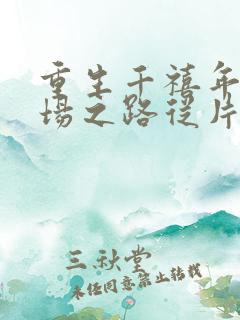 重生千禧年
场之路从片
三秋堂
未经同意禁止转载